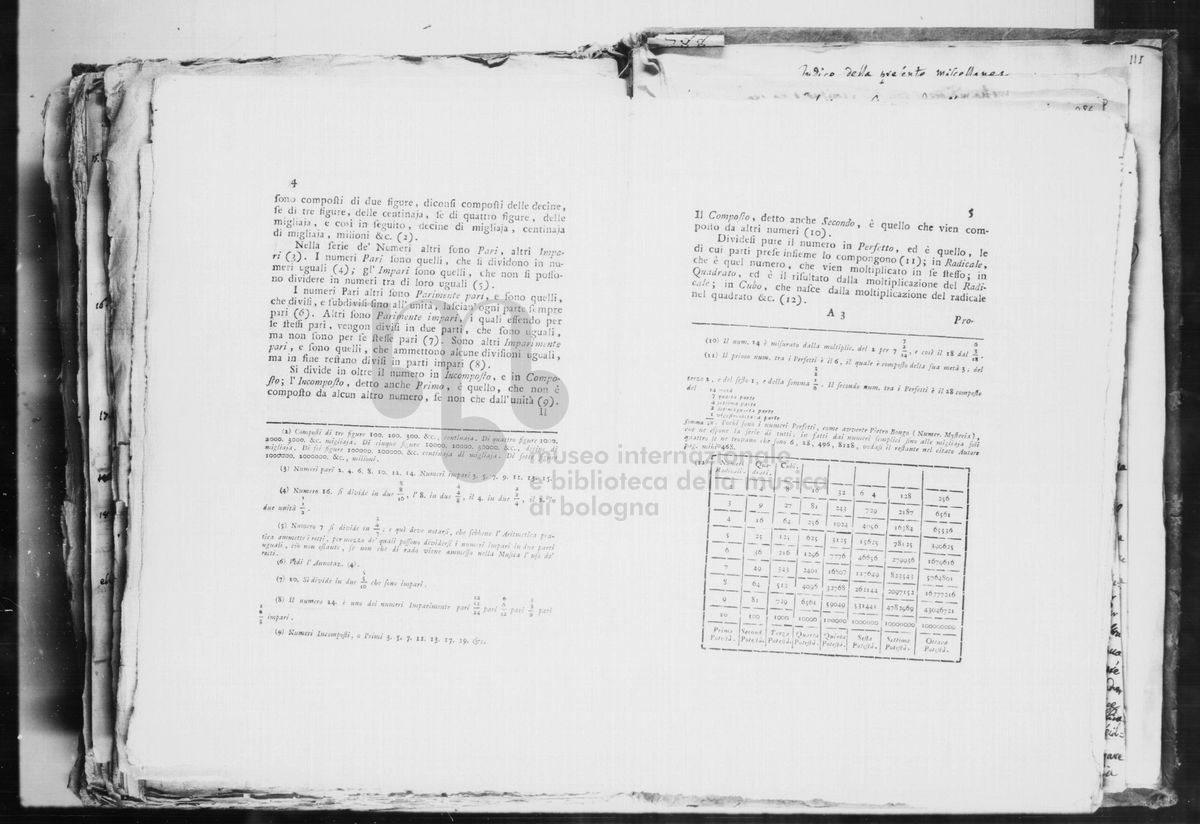 4
sono composti di due figure, diconsi composti delle decine,
se di tre figure, delle centinaja, se di quattro figure, delle
migliaja, e così in seguito, decine di migliaja, centinaja
di migliaja, milioni &c. (2).
Nella serie de' Numeri altri sono Pari, altri Impa-
ri (3). I numeri Pari sono quelli, che si dividono in nu-
meri uguali (4); gl' Impari sono quelli, che non si posso-
no dividere in numeri tra di loro uguali (5).
I numeri Pari altri sono Parimente pari, e sono quelli,
che divisi, e subdivisi sino all' unità, lascian' ogni parte sempre
pari (6). Altri sono Parimente impari, i quali essendo per
le stessi pari, vengon divisi in due parti, che sono uguali,
ma non sono per se stesse pari (7). Sono altri Imparimente
pari, e sono quelli, che ammettono alcune divisioni uguali,
ma in fine restano divisi in parti impari (8).
Si divide in oltre il numero in Incomposto, e in Compo-
sto; l' Incomposto, detto anche Primo, è quello, che non è
composto da alcun altro numero, se non che dall' unità (9).
Il
(2) Composti di tre figure 100. 200. 300. &c., centinaja. Di quattro figure 1000.
2000. 3000. &c. migliaja. Di cinque figure 10000. 20000. 30000. &c., decine di
migliaja. Di sei figure 100000. 200000. &c. centinaja di migliaja. Di sette figure
1000000. 2000000. &c., milioni.
(3) Numeri pari 2. 4. 6. 8. 10. 12. 14. Numeri impari 3. 5. 7. 9. 11. 13. 15.
(4) Numero 16. si divide in due 8 8 16, l' 8. in due 4 4 8, il 4. in due 2 2 4, il 2. in
due unità 1 1 2.
(5) Numero 7 si divide in 3 4 7; e quì deve notarsi, che sebbene l' Aritmetica pra-
tica ammette i rotti, per mezzo de' quali possono dividersi i numeri impari in due parti
uguali, ciò non ostante, se non che di rado viene ammesso nella Musica l' uso de'
rotti.
(6) Vedi l' Annotaz. (4).
(7) 10. Si divide in due 5 5 10 che sono impari.
(8) Il numero 24. è uno dei numeri Imparimente pari 12 12 24 pari 6 6 12 pari 3 3 6 pari
impari.
(9) Numeri Incomposti, o Primi 3. 5. 7. 11. 13. 17. 19. &c.
Indice della presente miscellanea
III
5
Il Composto, detto anche Secondo, è quello che vien com-
posto da altri numeri (10).
Dividesi pure il numero in Perfetto, ed è quello, le
di cui parti prese insieme lo compongono (11); in Radicale,
che è quel numero, che vien moltiplicato in se stesso; in
Quadrato, ed è il risultato dalla moltiplicazione del Radi-
cale; in Cubo, che nasce dalla moltiplicazione del radicale
nel quadrato &c. (12).
A 3
Pro-
(10) Il num. 14 è misurato dalla multiplic. del 2 per 7 7 2 14, e così il 18 dal 6 3 18.
(11) Il primo num. tra i Perfetti è il 6, il quale è composto della sua metà 3, del
terzo 2, e del sesto 1, e della somma 3 2 1 6. Il secondo num. tra i Perfetti è il 28 composto
del 14 metà
7 quarta parte
4 settima parte
2 decimaquarta parte
1 vigesimottava parte
somma 28. Pochi sono i numeri Perfetti, come avverte Pietro Bongo (Numer. Mysteria),
che ne espone la serie di tutti; in fatti dai numeri semplici sino alle migliaja soli
quattro se ne trovano che sono 6, 28, 496, 8128, vedasi il restante nel citato Autore
pag. mihi 468.
(12) Numeri Radicali. Quadrati. Cubi.
2 4 8 16 32 64 128 256
3 9 27 81 243 729 2187 6561
4 16 64 256 1024 4096 16384 65536
5 25 125 625 3125 15625 78125 390625
6 36 216 1296 7776 46656 279936 1679616
7 49 343 2401 16807 117649 823543 5764801
8 64 512 4096 32768 262144 2097152 16777216
9 81 729 6561 59049 531441 4782969 43046721
10 100 1000 10000 100000 1000000 10000000 100000000
Prima Potestà. Second. Potestà. Terza Potestà. Quarta Potestà. Quinta Potestà. Sesta Potestà. Settima Potestà. Ottava Potestà.
museo internazionale
e biblioteca della musica
di bologna